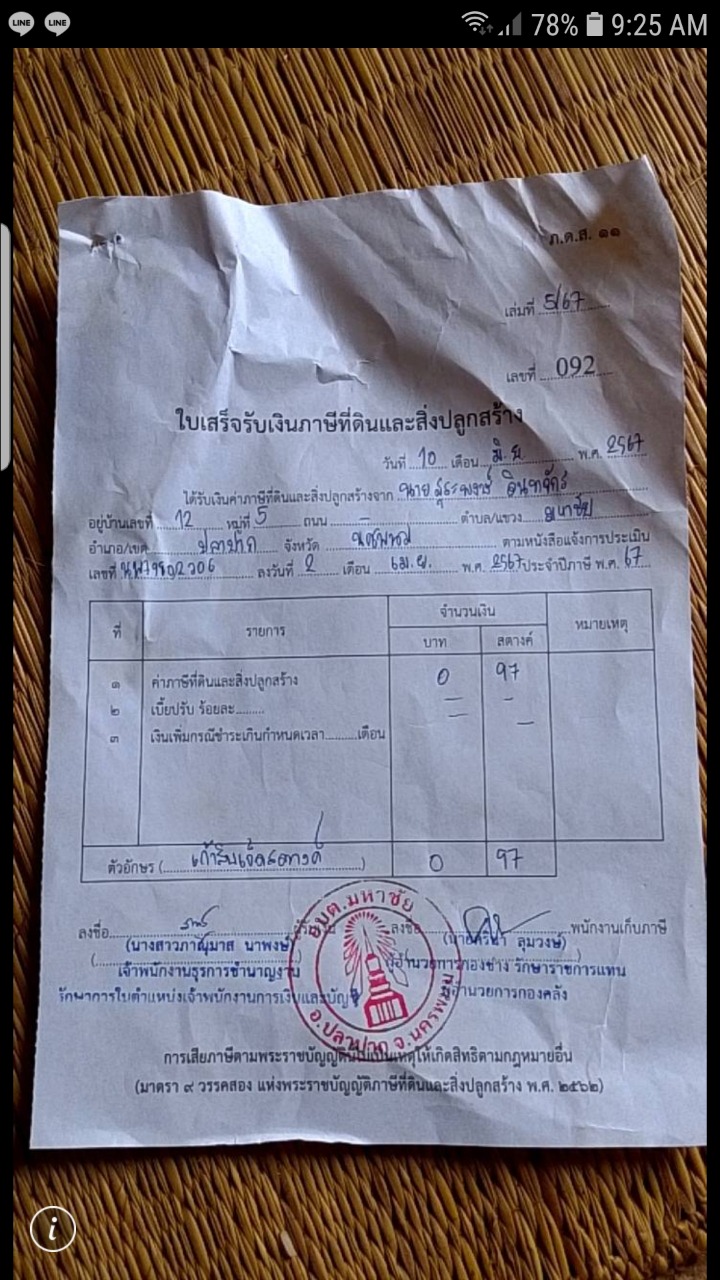 LINE LINE 78% 9:25 AM
ภ.ด.ส. ๑๑
เล่มที่ 5/67
เลขที่ 092
ใบเสร็จรับเงินภาษีที่ดินและสิ่งปลูกสร้าง
วันที่ 10 เดือน มิ.ย พ.ศ. 2567
ได้รับเงินค่าภาษีที่ดินและสิ่งปลูกสร้างจาก นาย
อยู่บ้านเลขที่ 12 หมู่ที่ 5 ถนน - ตำบล/แขวง มหาชัย
อำเภอ/เขต ปลาปาก จังหวัด นครพนม ตามหนังสือแจ้งการประเมิน
เลขที่ ลงวันที่ 2 เดือน เม.ย. พ.ศ. 2567 ประจำปีภาษี พ.ศ. 67
ที่ รายการ จำนวนเงิน หมายเหตุ
บาท สตางค์
๑ ค่าภาษีที่ดินและสิ่งปลูกสร้าง 0 97
๒ เบี้ยปรับ ร้อยละ......... = -
๓ เงินเพิ่มกรณีชำระเกินกำหนดเวลา..........เดือน = -
ตัวอักษร (เก้าสิบเจ็ดสตางค์) 0 97
ลงชื่อ ลงชื่อ พนักงานเก็บภาษี
(นางสาวภาณุมาส นาพงษ์) ลุมวงษ์)
เจ้าพนักงานธุรการชำนาญงาน ผู้อำนวยการกองช่าง รักษาราชการแทน
รักษาการในตำแหน่งเจ้าพนักงานการเงินและบัญชี ผู้อำนวยการกองคลัง
อบต.มหาชัย
อ.ปลาปาก จ.นครพนม
การเสียภาษีตามพระราชบัญญัตินี้ไม่เป็นเหตุให้เกิดสิทธิตามกฎหมายอื่น
(มาตรา ๙ วรรคสอง แห่งพระราชบัญญัติภาษีที่ดินและสิ่งปลูกสร้าง พ.ศ. ๒๕๖๒)
i